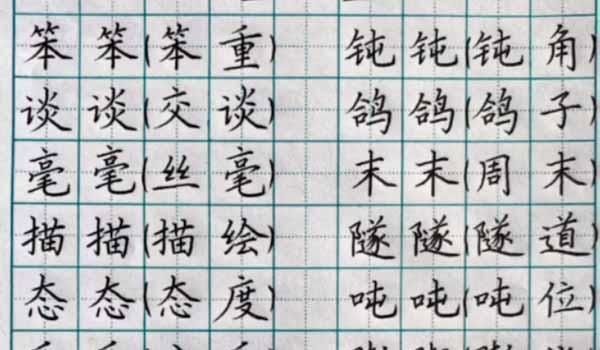 笨笨(笨重) 钝钝(钝角)
谈谈(交谈) 鸽鸽(鸽子)
毫毫(丝毫) 末末(周末)
描描(描绘) 隧隧(隧道)
态态(态度) 吨吨(吨位)